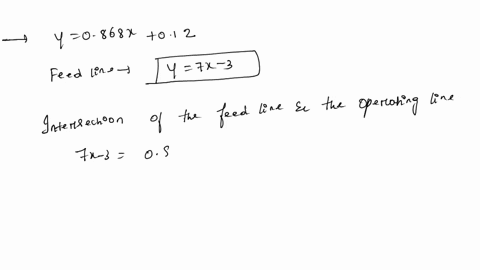 → y = 0.868x + 0.12
Feed line → y = 7x-3
Intersection of the feed line & the operating line
7x-3 = 0.8